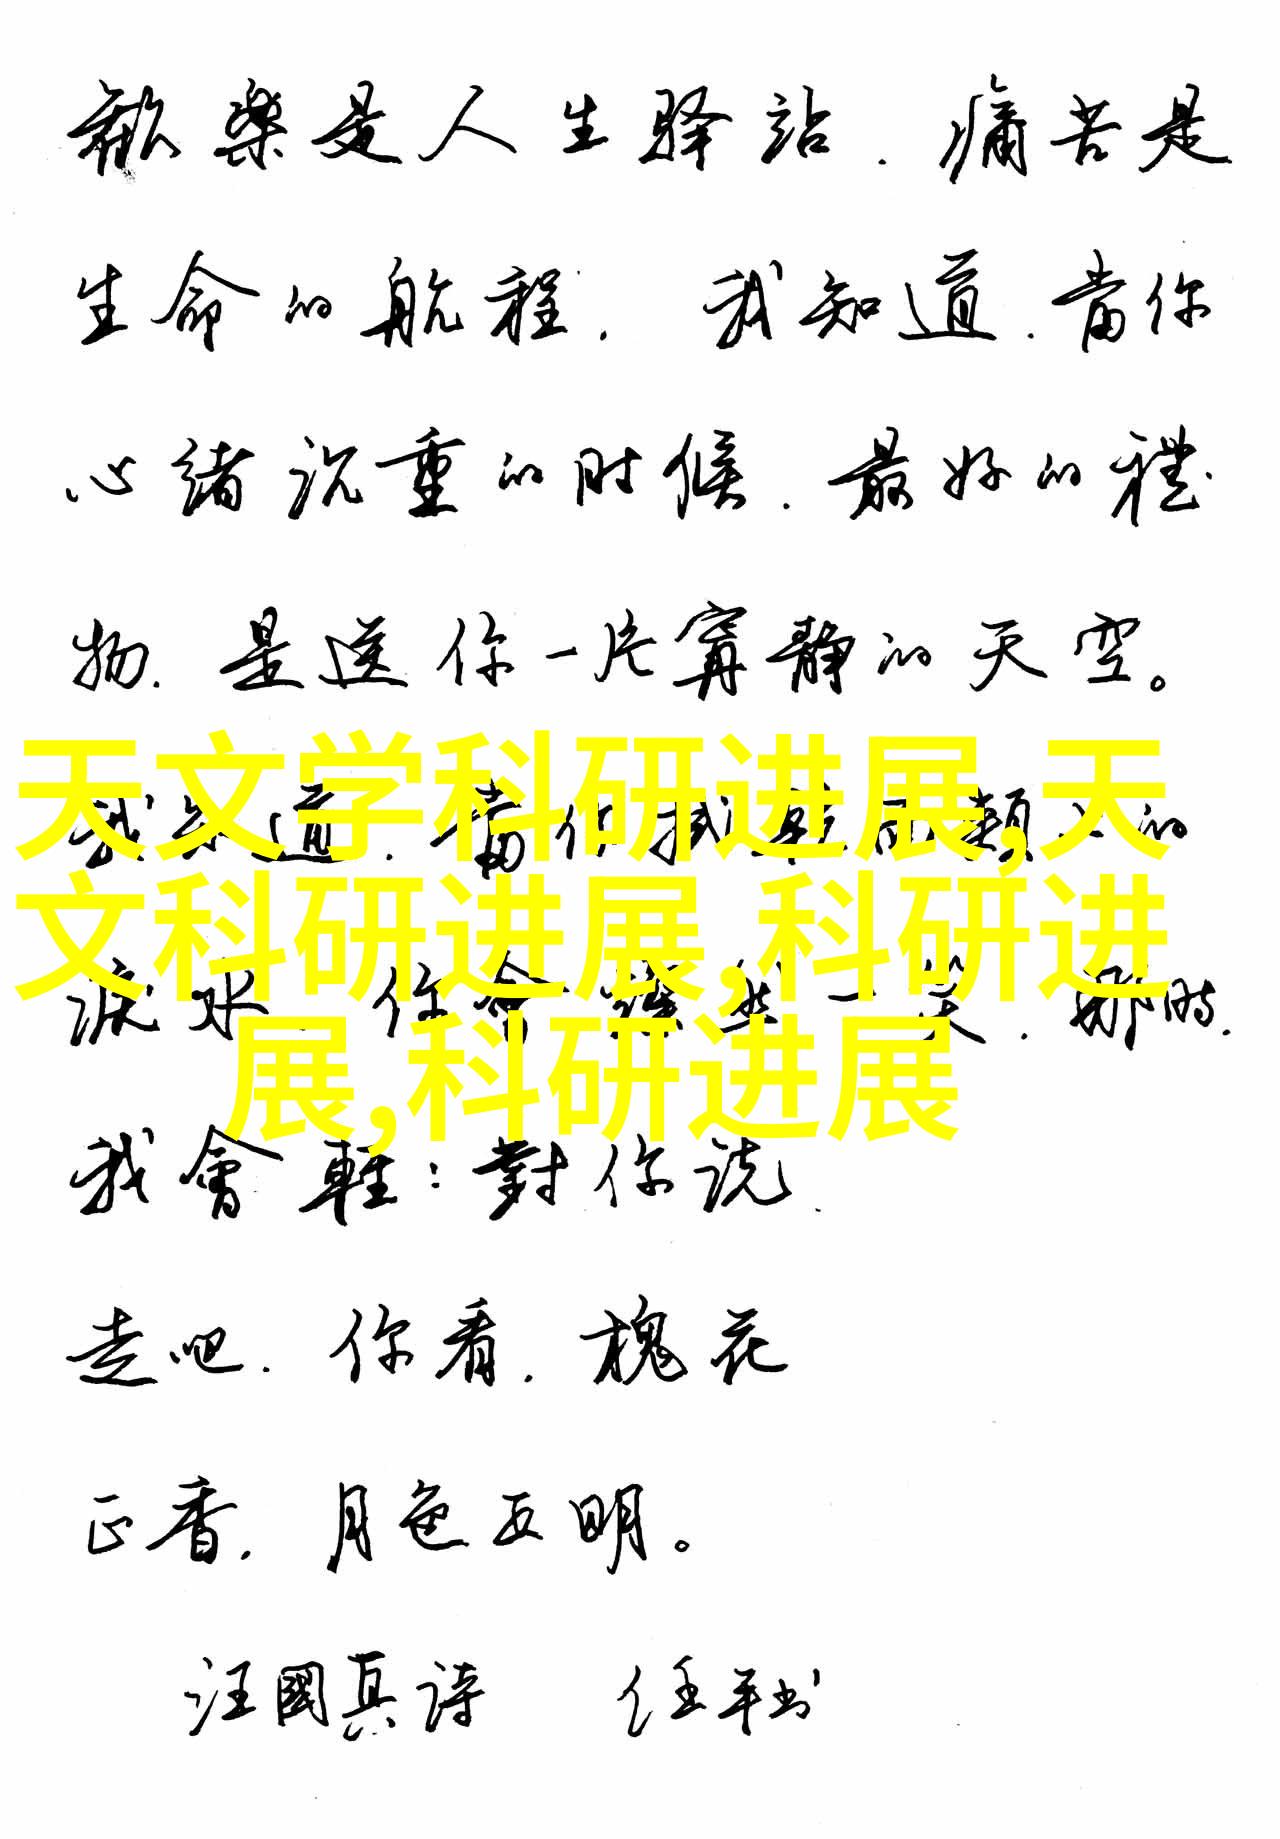 歡樂是人生驿站.痛苦是
生命的航程.我知道.當你
心緒沉重的时候.最好的禮
物.是送你一片寧静的天空。
天文学科研进展,天
我知道.當你拭乾面頰上的
文科研进展,科研进
淚水.你會燦然一笑.那時.
展,科研进展
我會輕:對你说.
走吧.你看.槐花
正香.月色正明。
汪國真诗 任平书